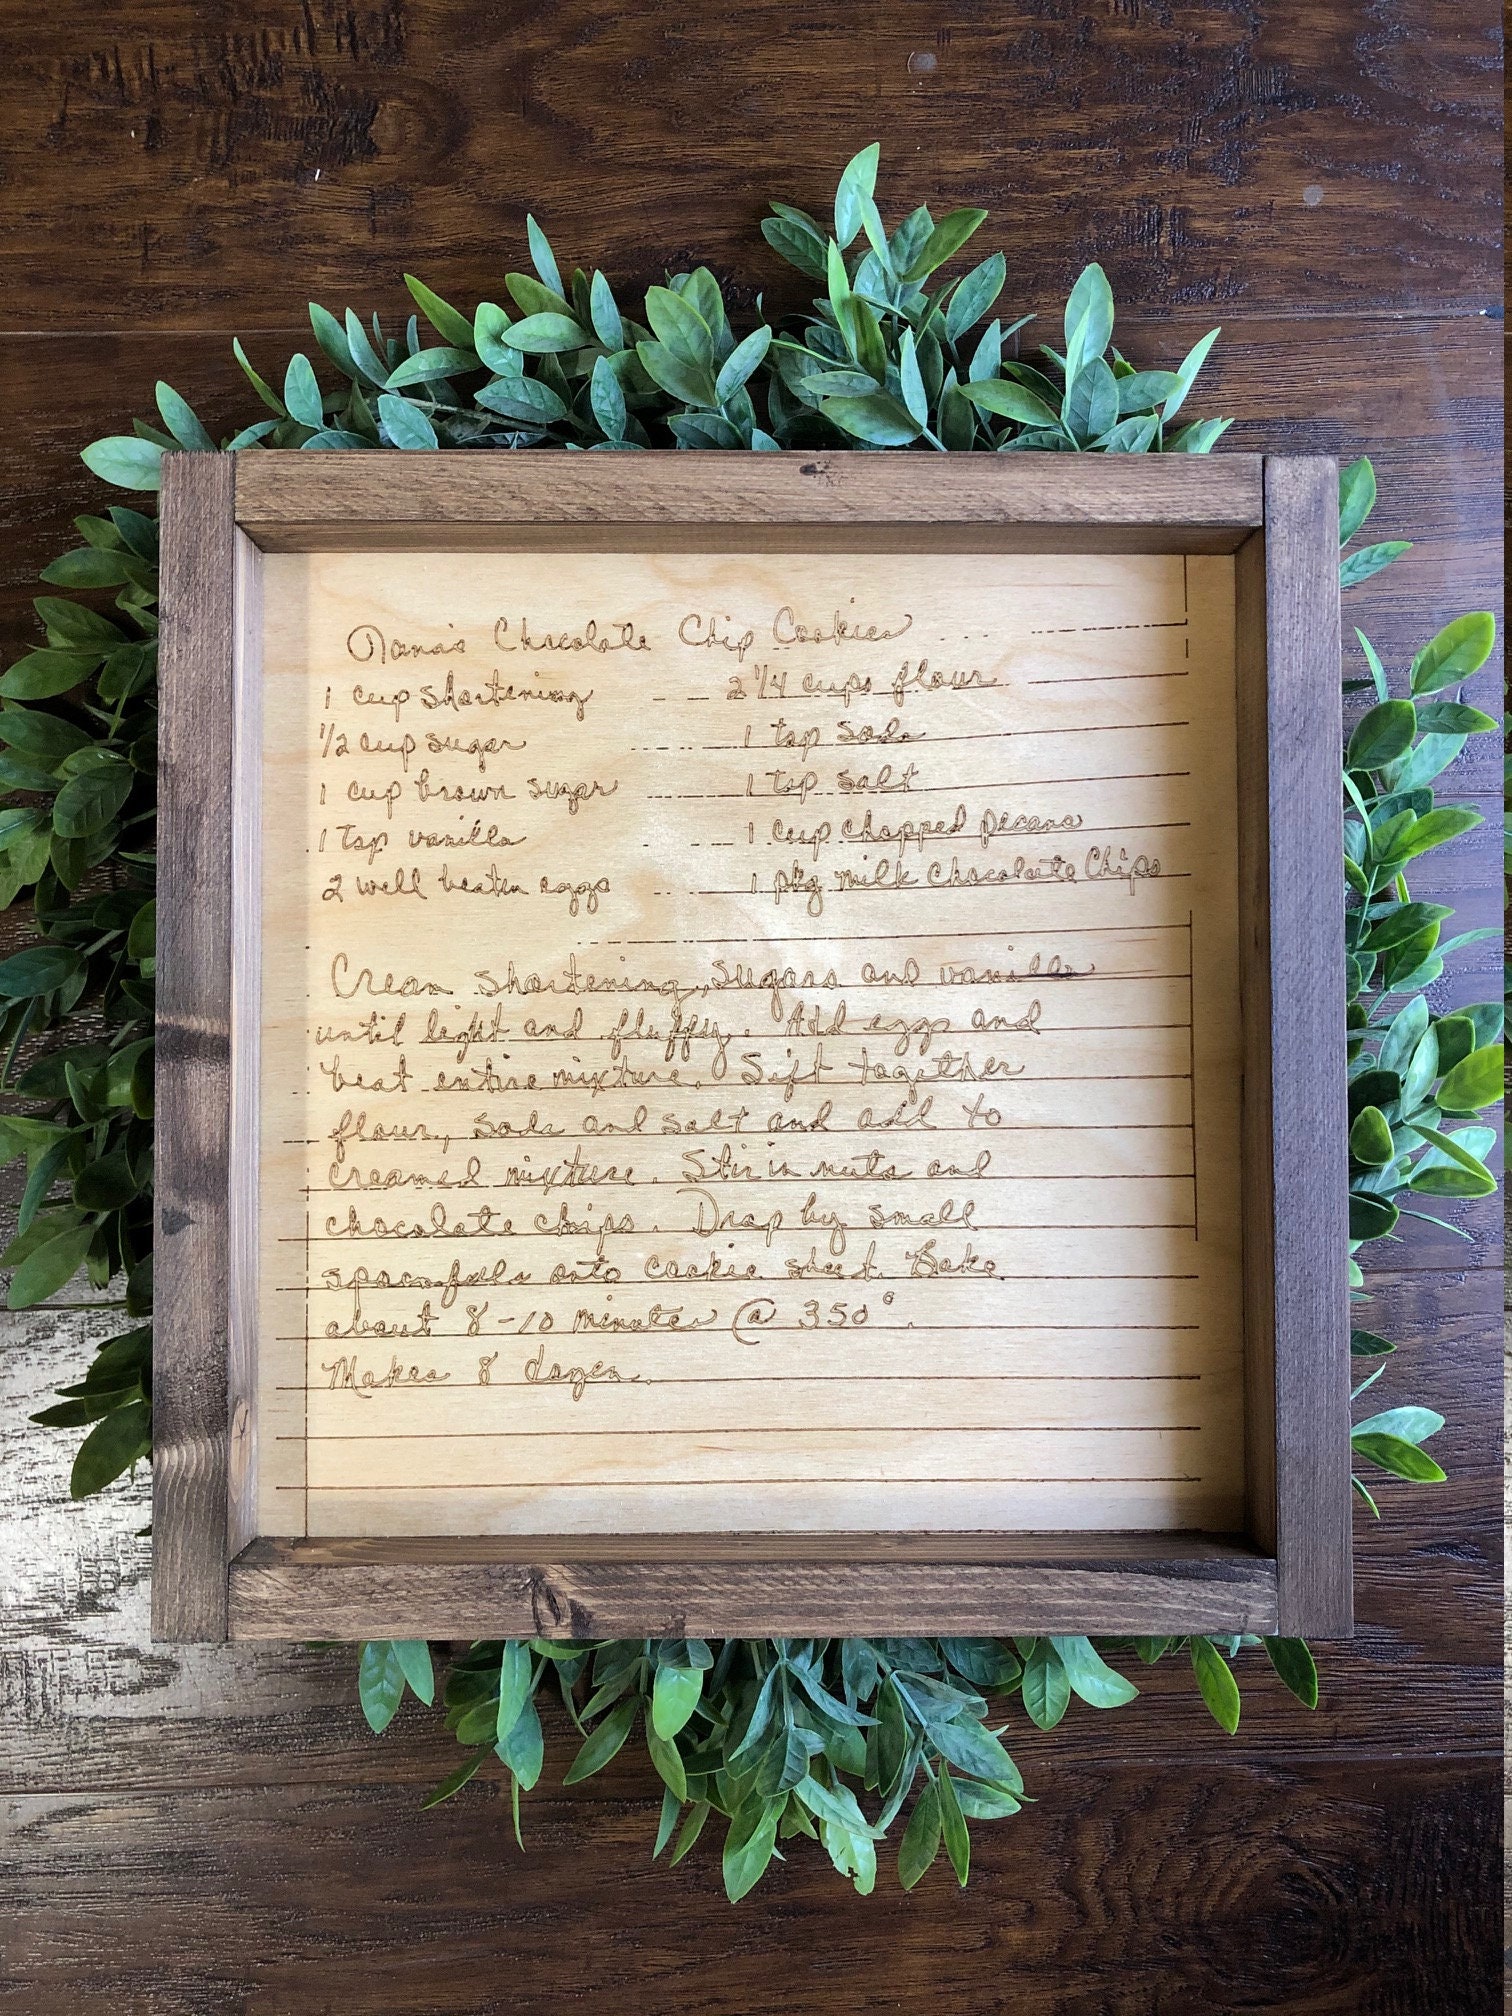 Nana's Chocolate Chip Cookies
1 cup shortening 2 1/4 cups flour
1/2 cup sugar 1 tsp soda
1 cup brown sugar 1 tsp salt
1 tsp vanilla 1 cup chopped pecans
2 well beaten eggs 1 pkg milk chocolate Chips
Cream shortening, sugars and vanilla
until light and fluffy. Add eggs and
beat entire mixture. Sift together
flour, soda and salt and add to
creamed mixture. Stir in nuts and
chocolate chips. Drop by small
spoonfuls onto cookie sheet. Bake
about 8-10 minutes @ 350°.
Makes 8 dozen.